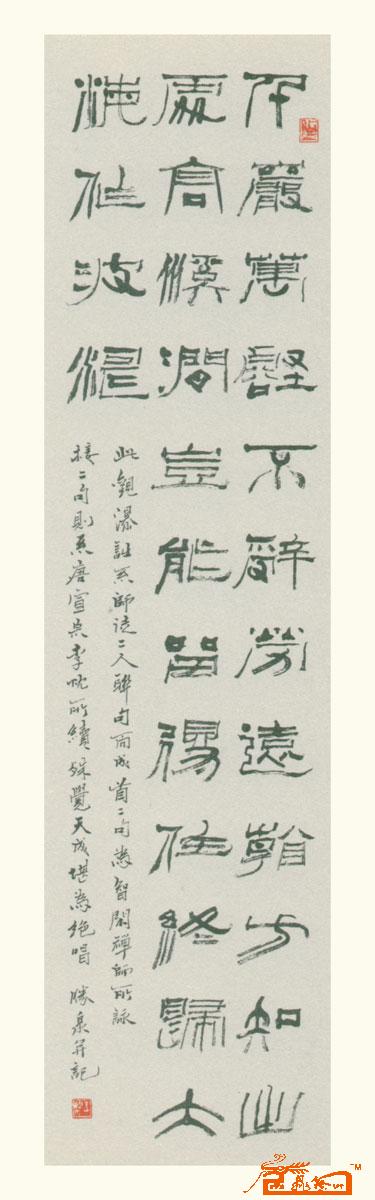 千巖萬壑不辭勞遠看方知出
處高溪澗豈能留得住終歸大
海作波濤
此觀瀑詩系師徒二人聯句而成首二句為智閑禪師所詠
接二句則系唐宣宗李忱所續殊覺天成堪為絕唱 勝泉并記